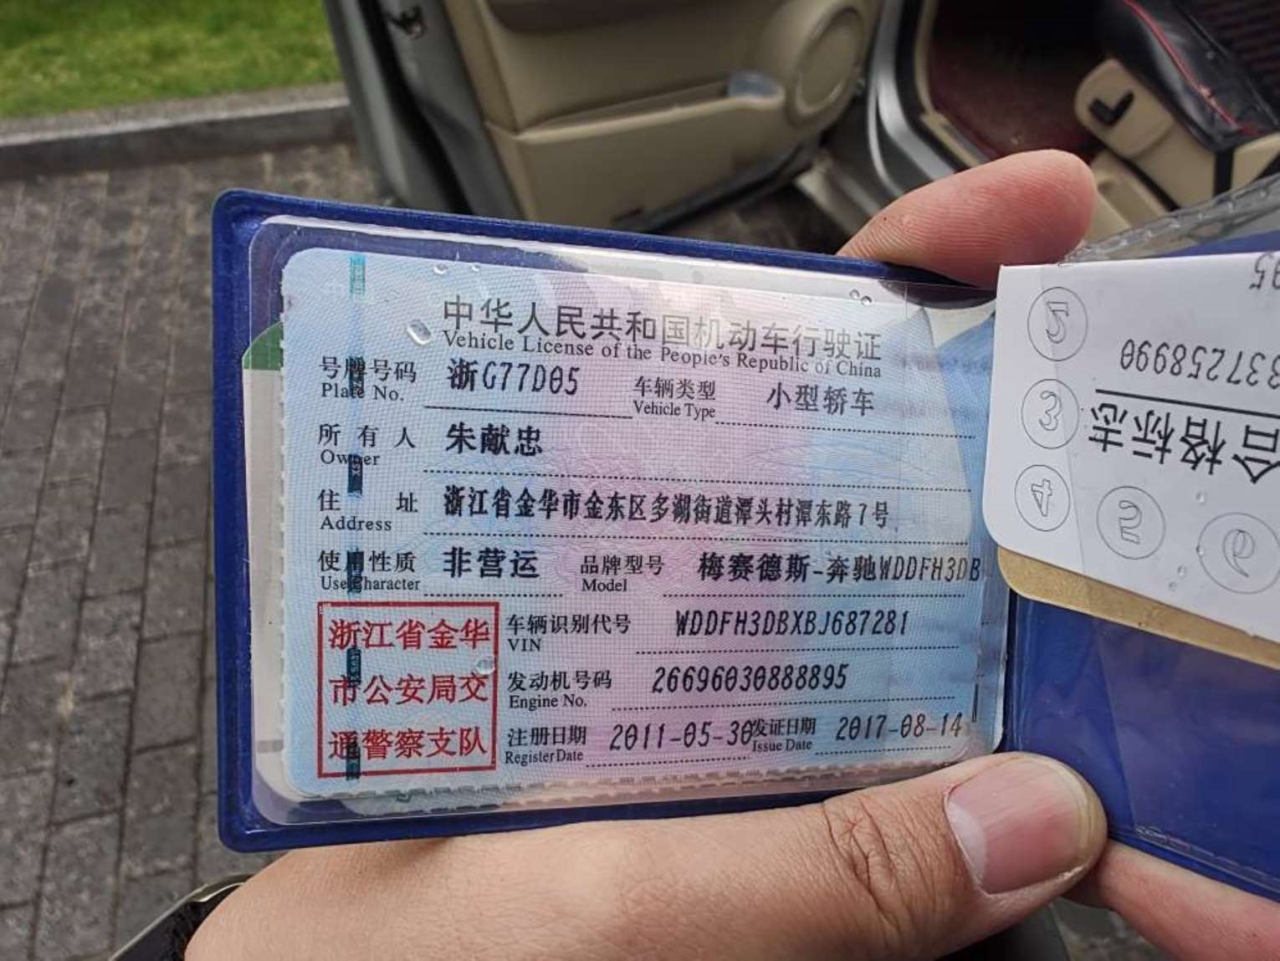 中华人民共和国机动车行驶证
Vehicle License of the People's Republic of China
号牌号码 浙G77D05 车辆类型 小型轿车
Plate No. Vehicle Type
所有人 朱献忠
Owner
住址 浙江省金华市金东区多湖街道潭头村潭东路7号
Address
使用性质 非营运 品牌型号 梅赛德斯-奔驰WDDFH3DB
Use Character Model
浙江省金华
市公安局交
通警察支队
车辆识别代号 WDDFH3DBXBJ687281
VIN
发动机号码 26696030888895
Engine No.
注册日期 2011-05-30 发证日期 2017-08-14
Register Date Issue Date
337258990
合格标志
2
3
4
5
6